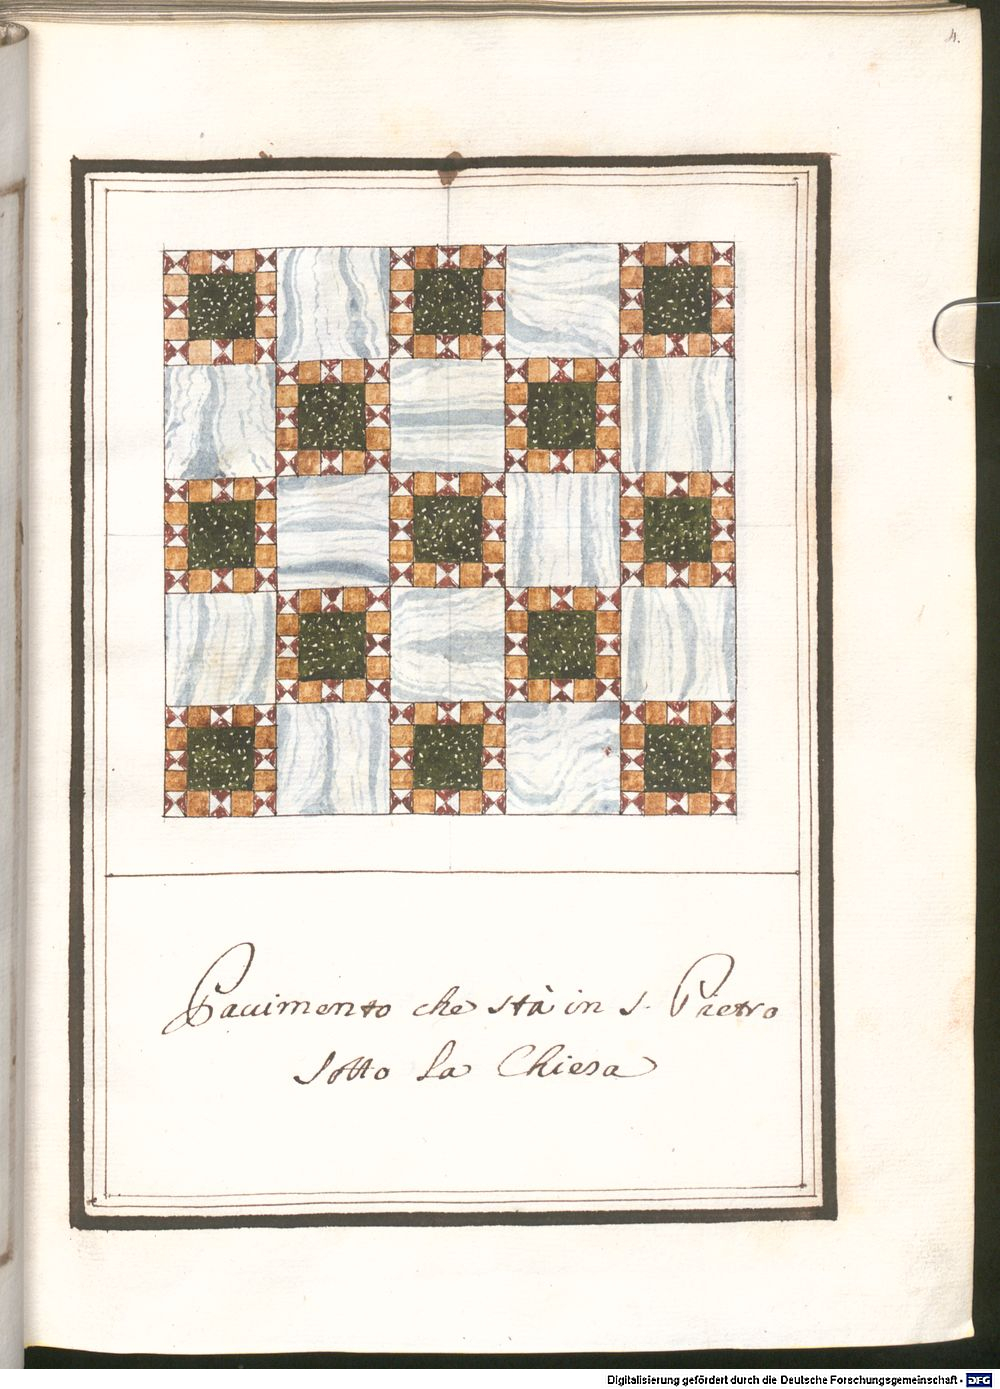 4.
Pauimento che stà in S. Pietro
sotto la Chiesa
Digitalisierung gefördert durch die Deutsche Forschungsgemeinschaft - DFG